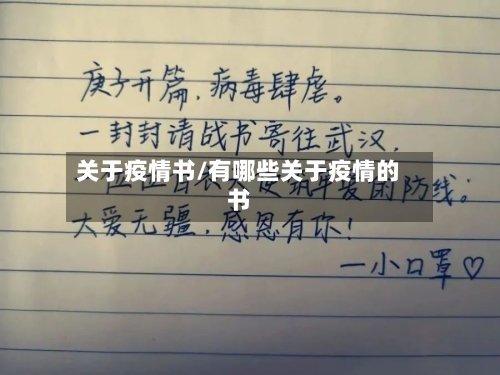 庚子开篇，病毒肆虐。
一封封请战书寄往武汉，
关于疫情书/有哪些关于疫情的
书
防线；
大爱无疆，感恩有你！
一小口罩♡